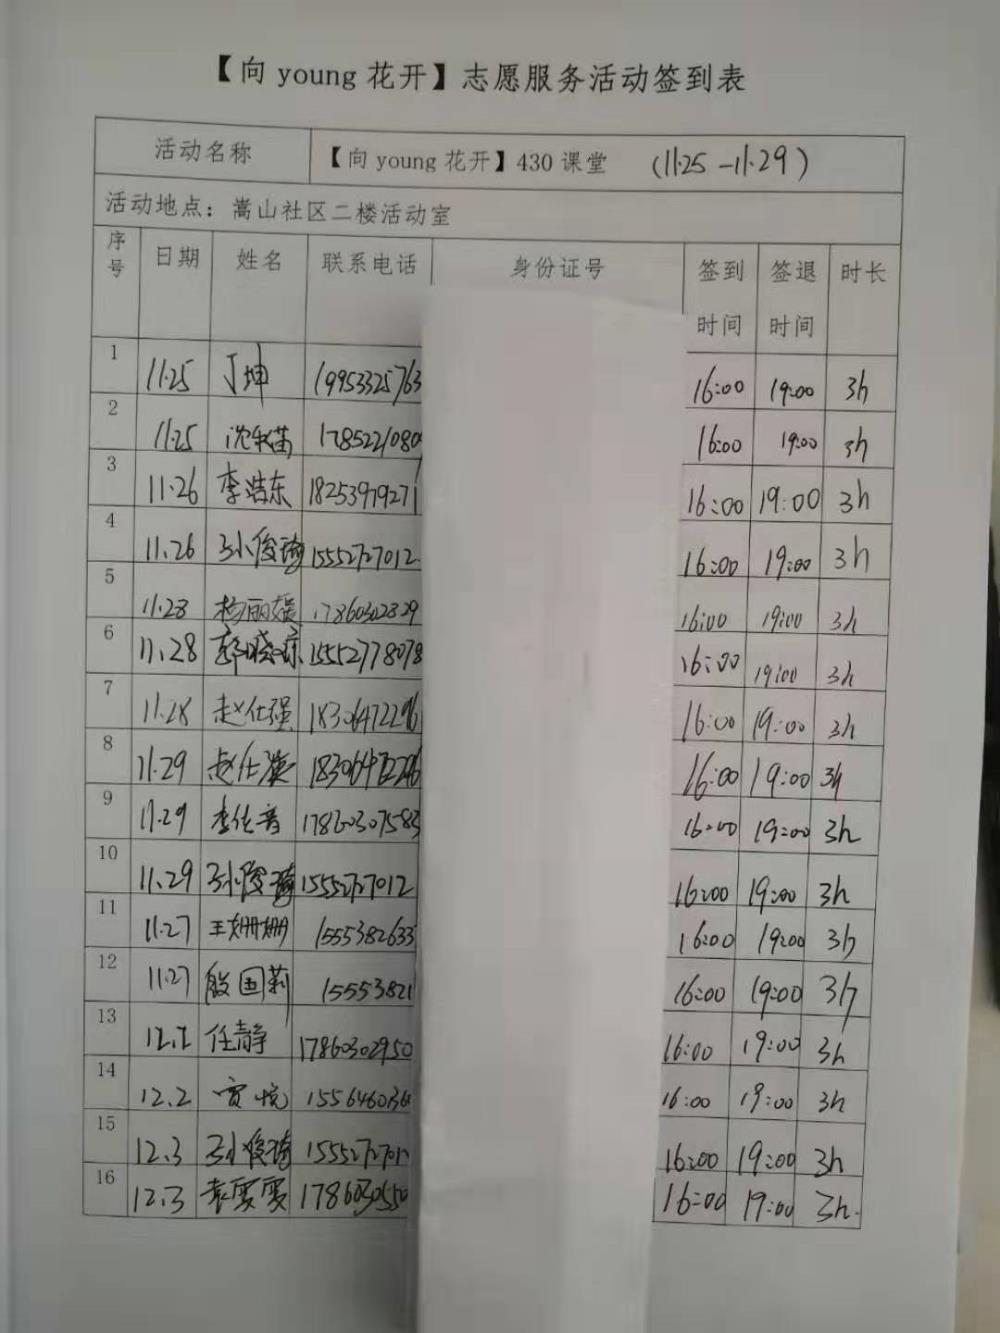 【向 young 花开】志愿服务活动签到表
活动名称 【向 young 花开】430 课堂 (11.25-11.29)
活动地点：嵩山社区二楼活动室
序号 日期 姓名 联系电话 身份证号 签到时间 签退时间 时长
1 11.25 丁坤 19953325763 16:00 19:00 3h
2 11.25 1785221080 16:00 19:00 3h
3 11.26 李浩东 18253979271 16:00 19:00 3h
4 11.26 孙俊琦 15552727012 16:00 19:00 3h
5 11.28 杨丽媛 17860302829 16:00 19:00 3h
6 11.28 郭晓琼 15552778078 16:00 19:00 3h
7 11.28 赵仕强 18306472296 16:00 19:00 3h
8 11.29 赵仕强 18306472296 16:00 19:00 3h
9 11.29 17860307583 16:00 19:00 3h
10 11.29 孙俊琦 15552727012 16:00 19:00 3h
11 11.27 王姗姗 1555382633 16:00 19:00 3h
12 11.27 殷国莉 15553821 16:00 19:00 3h
13 12.2 任静 17860302950 16:00 19:00 3h
14 12.2 1556460360 16:00 19:00 3h
15 12.3 孙俊琦 1555272701 16:00 19:00 3h
16 12.3 袁雯雯 1786030550 16:00 19:00 3h.